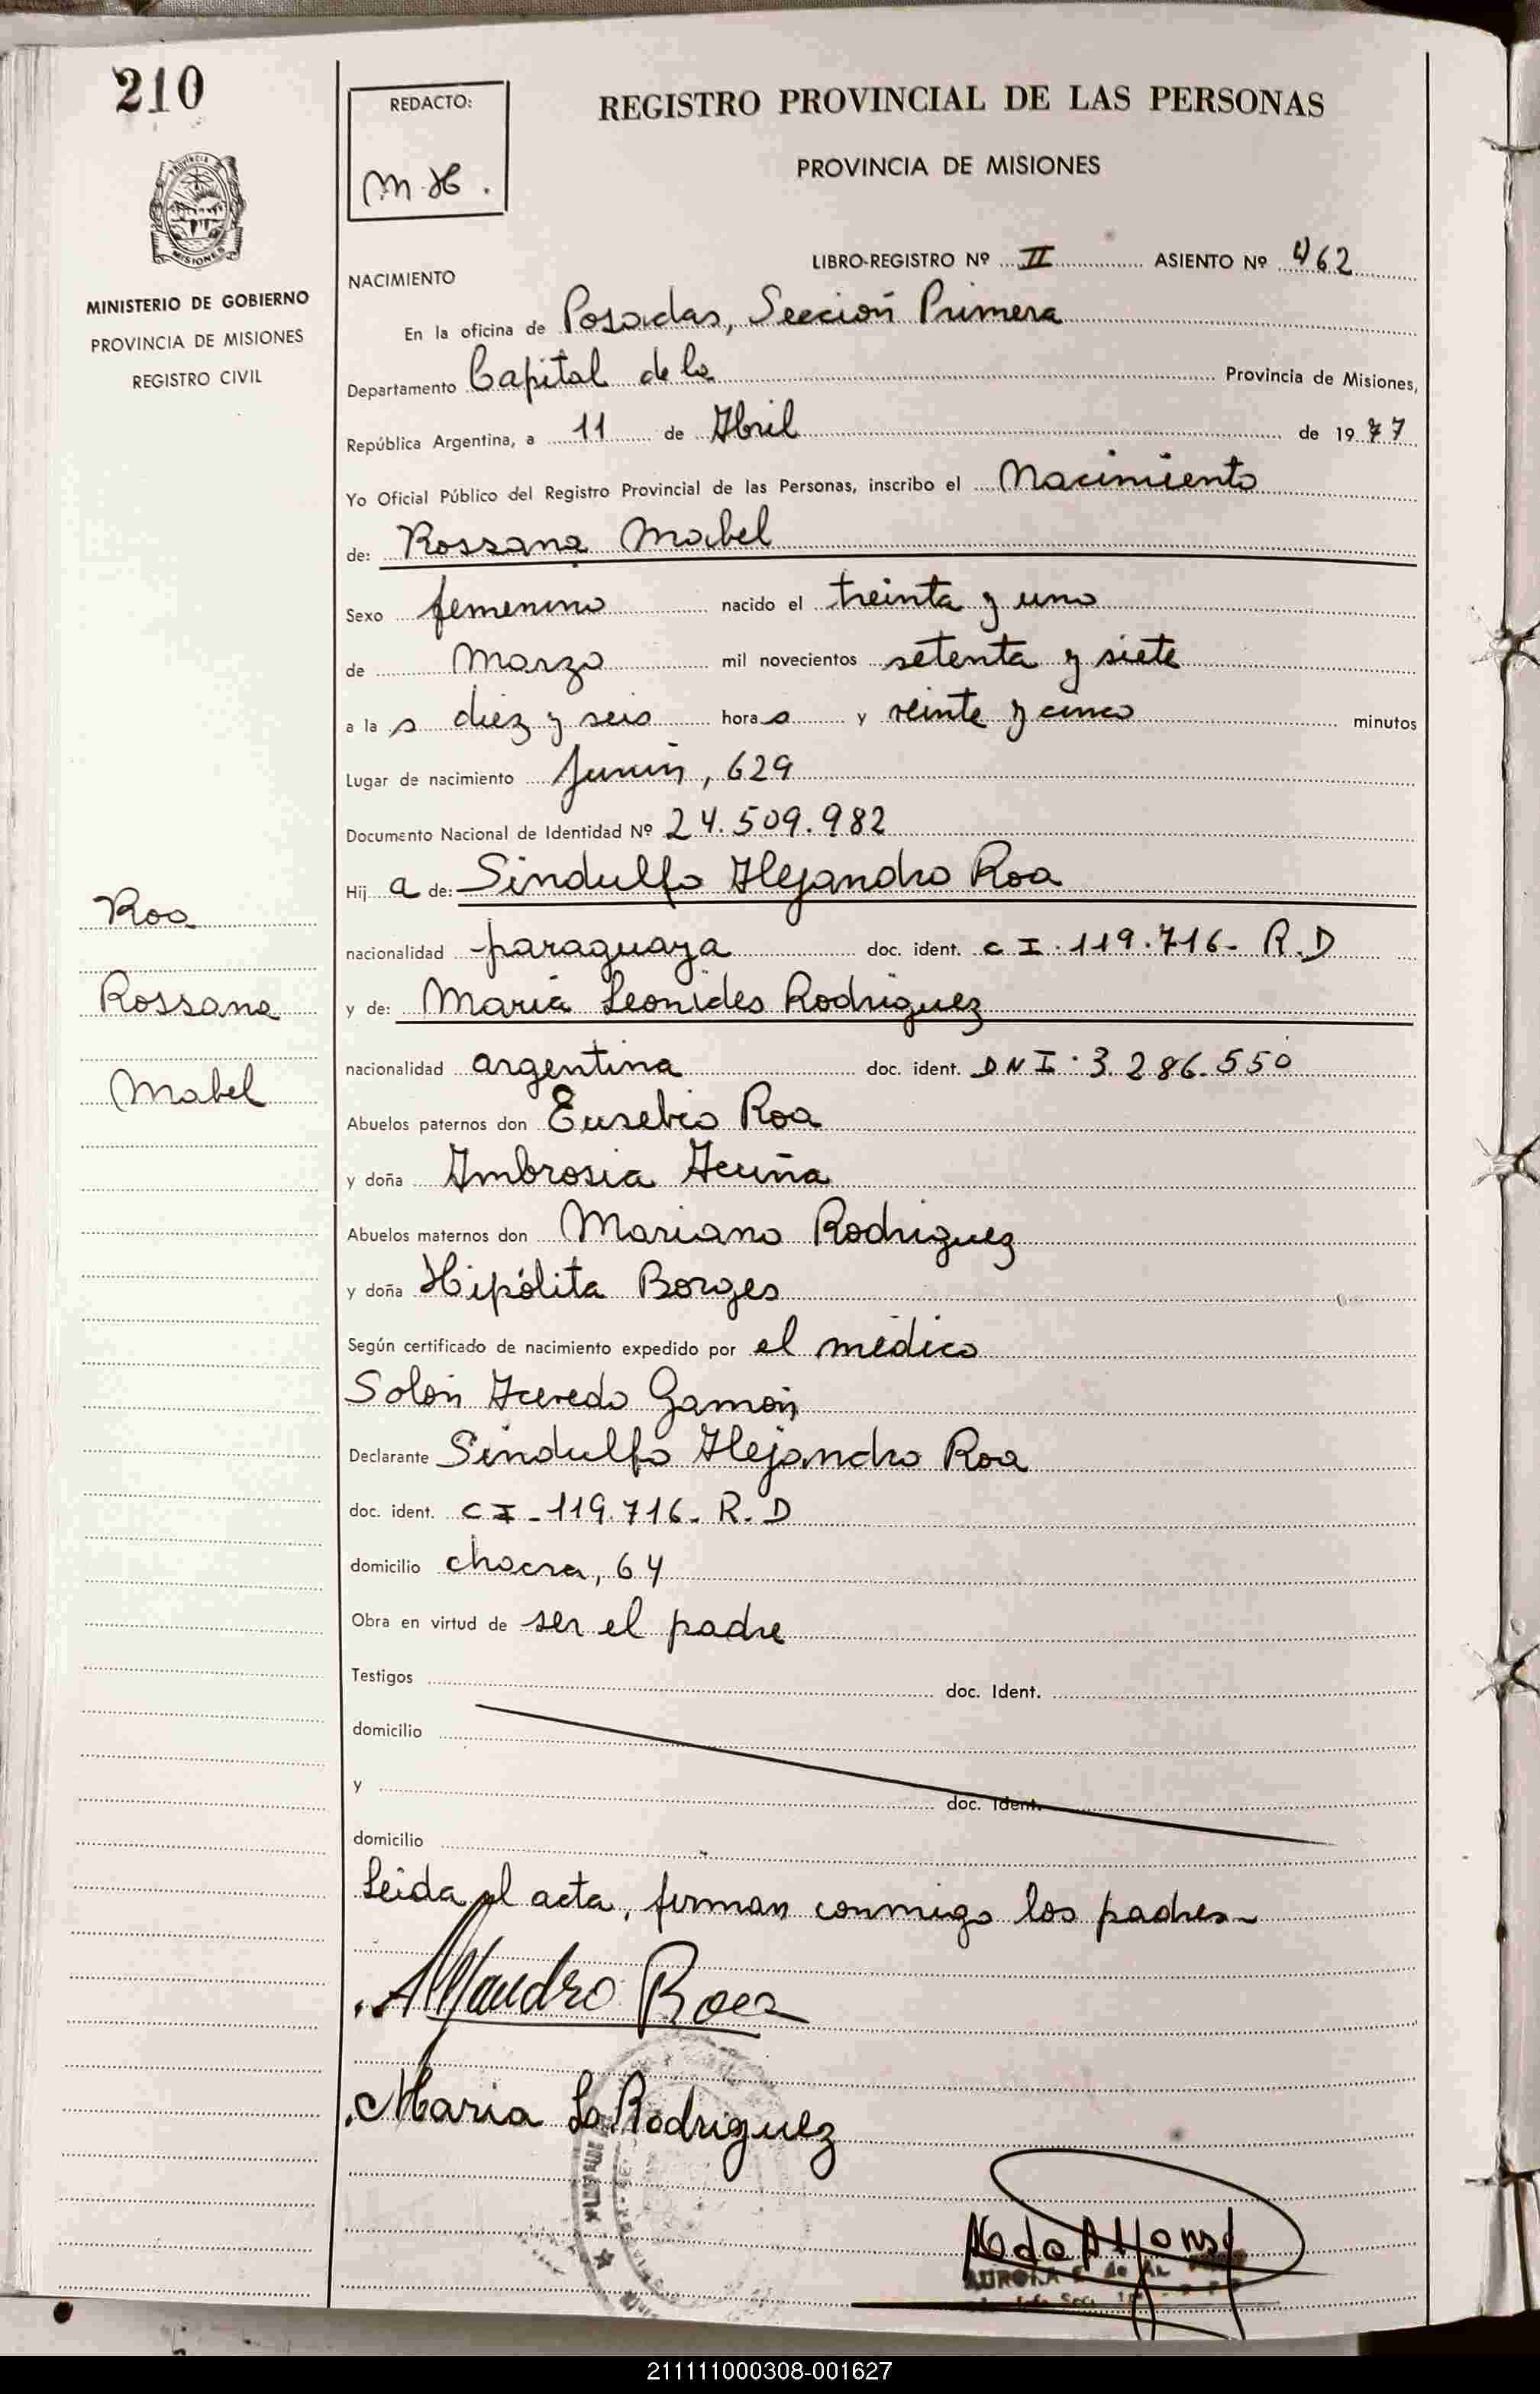 210
REDACTO:
M.H.
REGISTRO PROVINCIAL DE LAS PERSONAS
PROVINCIA DE MISIONES
MISIONES
MINISTERIO DE GOBIERNO
PROVINCIA DE MISIONES
REGISTRO CIVIL
LIBRO-REGISTRO Nº II ASIENTO Nº 462
NACIMIENTO
En la oficina de Posadas, Sección Primera
Departamento Capital de la Provincia de Misiones,
República Argentina, a 11 de Abril de 1977
Yo Oficial Público del Registro Provincial de las Personas, inscribo el Nacimiento
de: Rossana Mabel
Sexo femenino nacido el treinta y uno
de Marzo mil novecientos setenta y siete
a la s diez y seis hora s y veinte y cinco minutos
Lugar de nacimiento Junín, 629
Documento Nacional de Identidad Nº 24.509.982
Hij a de: Sindulfo Alejandro Roa
Roa
nacionalidad paraguaya doc. ident. C I. 119.716- R.D
Rossana
y de: María Leonides Rodriguez
nacionalidad argentina doc. ident. D N I. 3.286.550
Mabel
Abuelos paternos don Eusebio Roa
y doña Ambrosia Acuña
Abuelos maternos don Mariano Rodriguez
y doña Hipólita Borges
Según certificado de nacimiento expedido por el médico
Solón Acevedo Gamón
Declarante Sindulfo Alejandro Roa
doc. ident. C I - 119.716. R.D
domicilio chacra, 64
Obra en virtud de ser el padre
Testigos doc. Ident.
domicilio
y doc. Ident.
domicilio
Leida el acta, firman conmigo los padres-
Alejandro Roa
Maria L. Rodriguez
AURORA
211111000308-001627